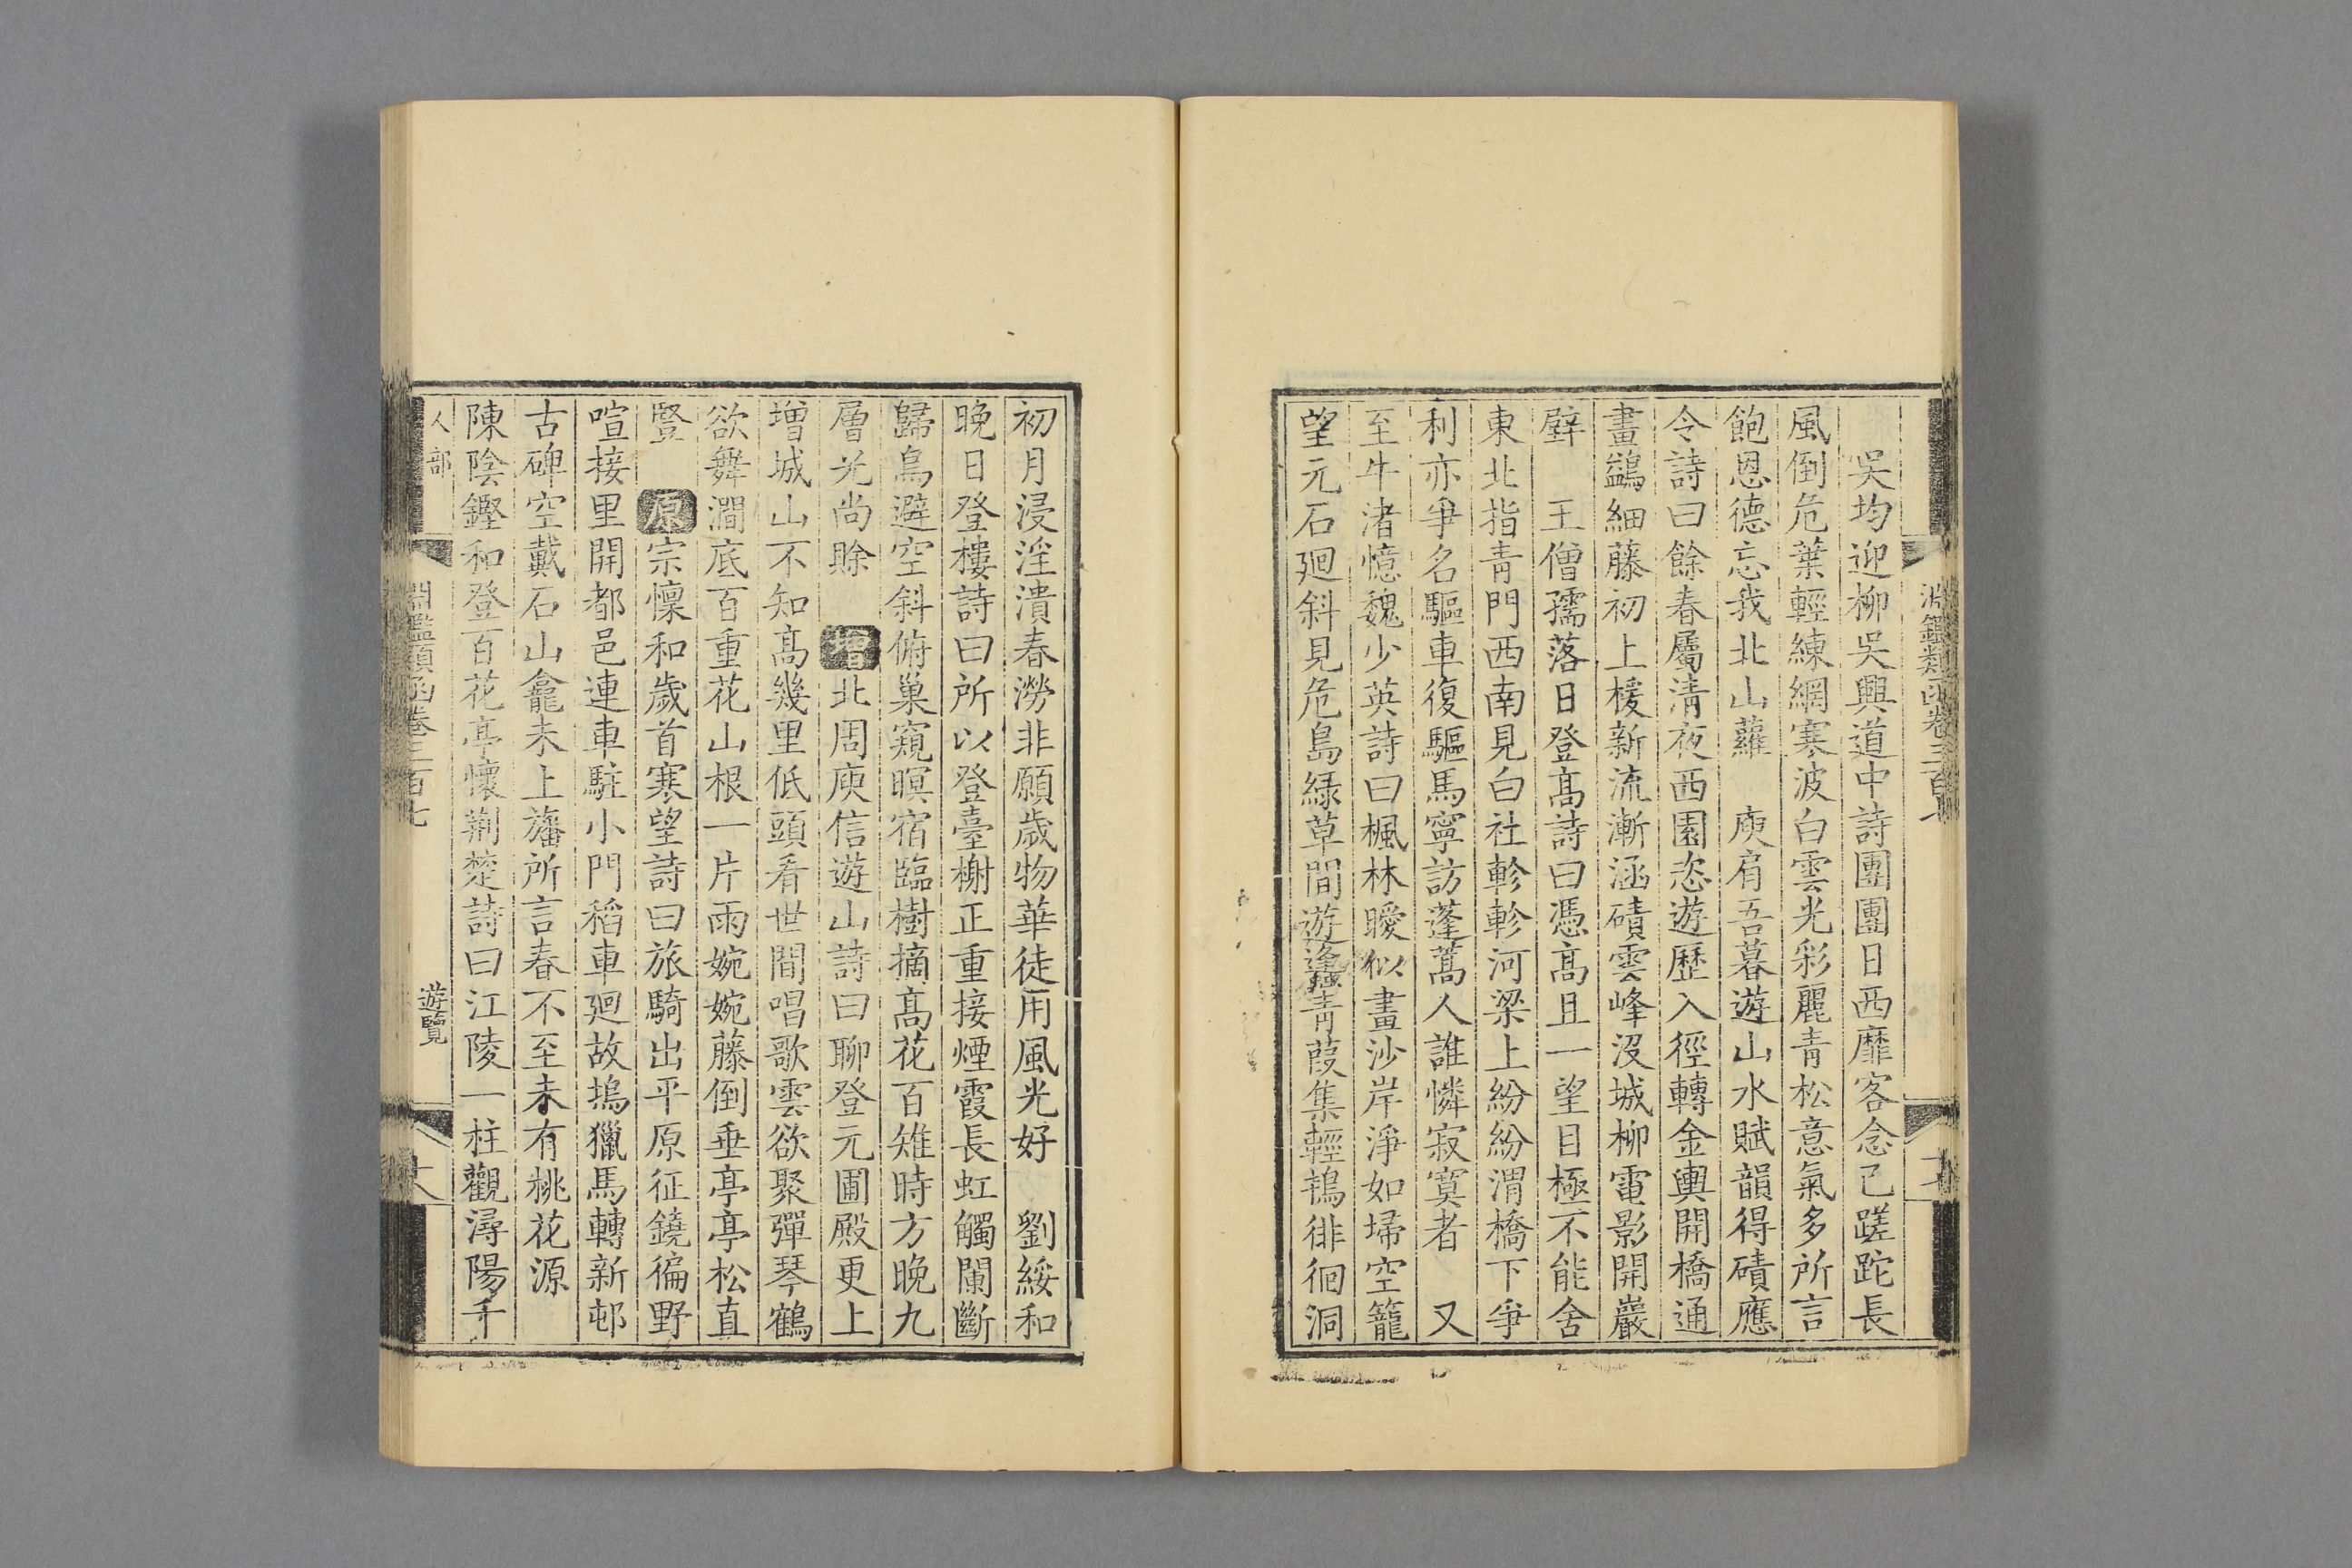 吳均迎柳吳興道中詩團團日西靡客念已蹉跎長
風倒危葉輕練網寒波白雲光彩麗青松意氣多所言
飽恩德忘我北山蘿　庾肩吾暮遊山水賦韻得磧應
令詩曰餘春屬清夜西園恣遊歷入徑轉金輿開橋通
畫鷁細藤初上楥新流漸涵磧雲峰沒城柳電影開巖
壁　王僧孺落日登髙詩曰憑髙且一望目極不能舍
東北指青門西南見白社軫軫河梁上紛紛渭橋下爭
利亦爭名驅車復驅馬寧訪蓬蒿人誰憐寂寞者　又
至牛渚憶魏少英詩曰楓林曖似畫沙岸淨如埽空籠
望元石廻斜見危島綠草間遊蠭青葭集輕鴇徘徊洞
初月浸淫潰春澇非願歲物華徒用風光好　劉綏和
晚日登樓詩曰所以登臺榭正重接煙霞長虹觸闌斷
歸烏避空斜俯巢窺暝宿臨樹摘髙花百雉時方晚九
層光尚賒　增北周庾信遊山詩曰聊登元圃殿更上
増城山不知髙幾里低頭看世間唱歌雲欲聚彈琴鶴
欲舞澗底百重花山根一片雨婉婉藤倒垂亭亭松直
豎　原宗懍和歲首寒望詩曰旅騎出平原征鐃徧野
喧接里開都邑連車駐小門稻車廻故塢獵馬轉新邨
古碑空戴石山龕未上旛所言春不至未有桃花源
陳陰鏗和登百花亭懷荆楚詩曰江陵一柱觀潯陽千
人部
淵鑑類函卷三百七
遊覽